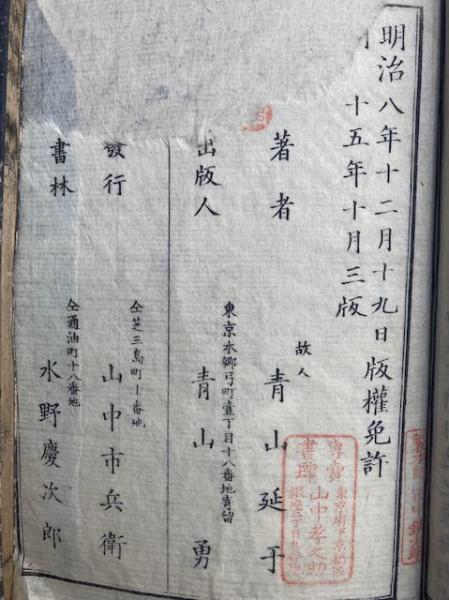 明治八年十二月十九日版權免許
十五年十月三版
著者
故人
青山延于
出版人
東京本郷弓町壹丁目十八番地寄留
青山 勇
發行
仝芝三島町十番地
山中市兵衛
書林
仝通油町十八番地
水野慶次郎
專賣
書肆
東京府下京橋區
山中孝之助